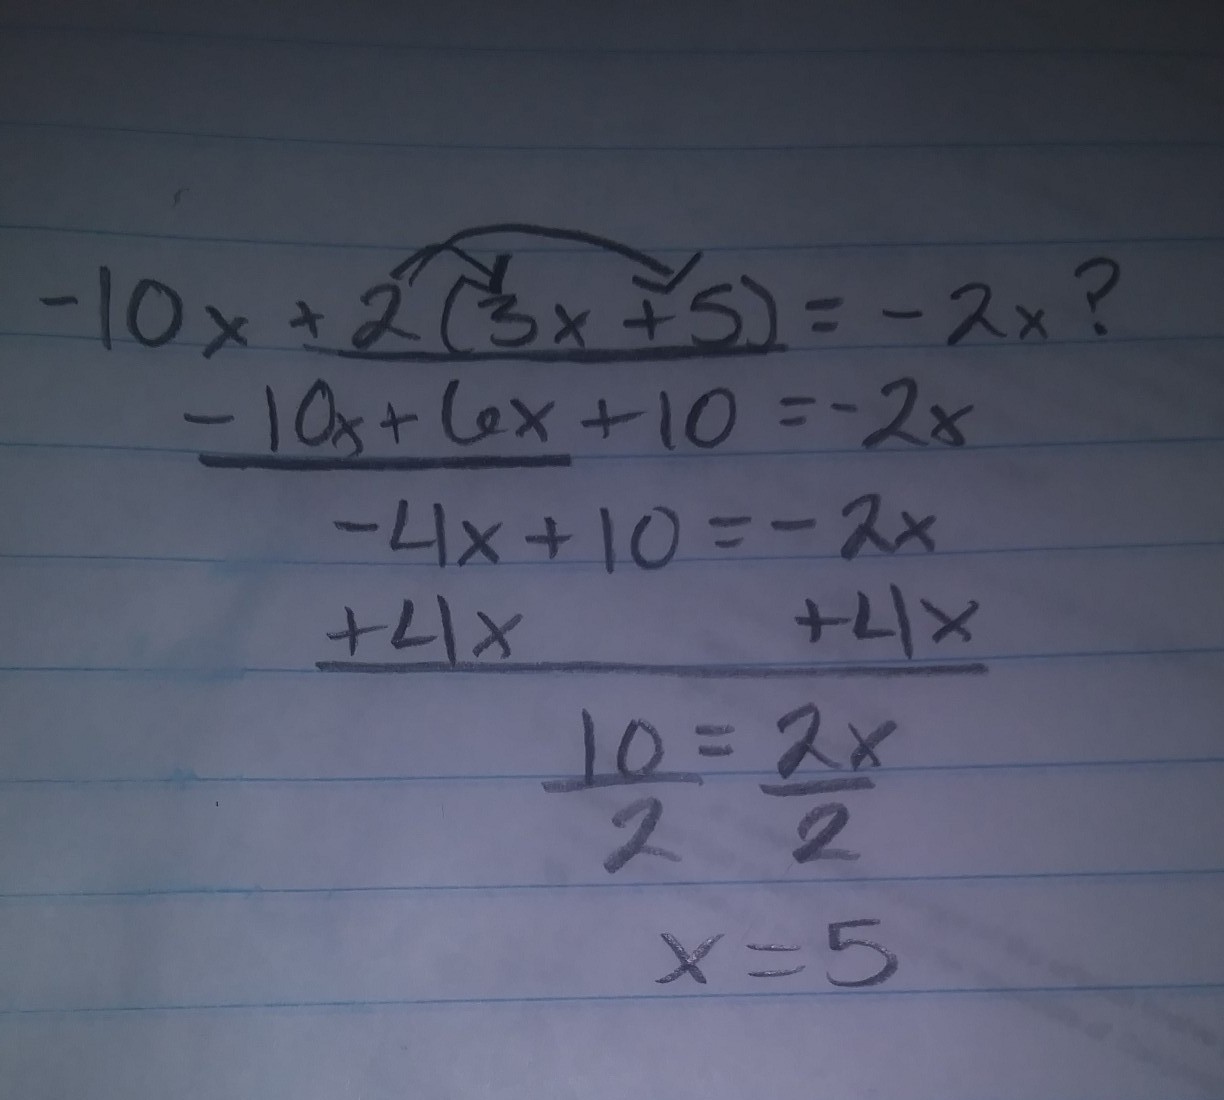 -10x + 2(3x + 5) = - 2x?
- 10x + 6x + 10 = - 2x
-4x + 10 = - 2x
+4x +4x
10 = 2x
2 2
x = 5